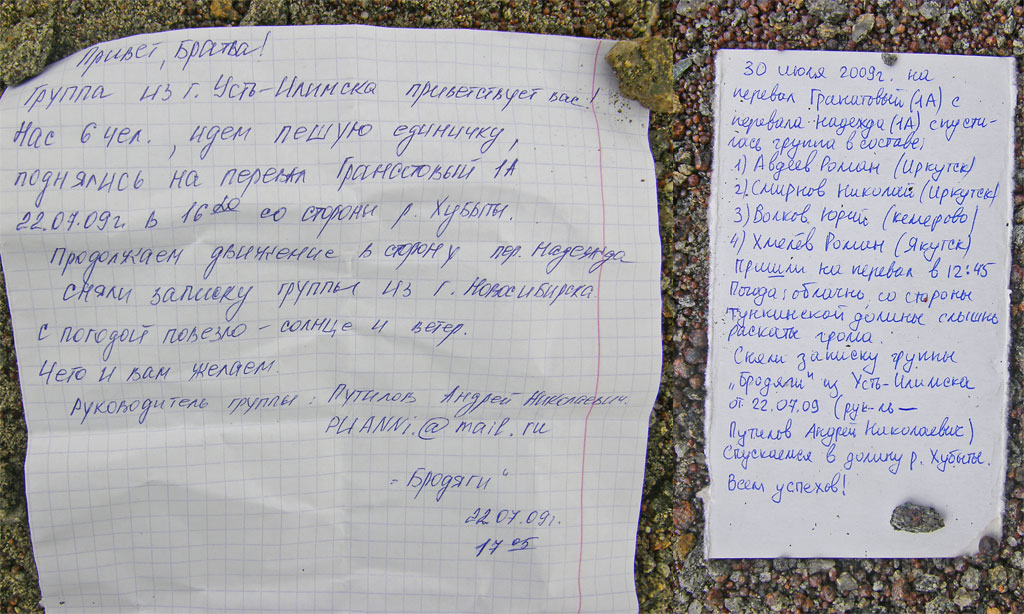 Привет, Братва!
Группа из г. Усть-Илимска приветствует вас!
Нас 6 чел., идем пешую единичку,
поднялись на перевал Гранитовый 1А
22.07.09г. в 16 00 со стороны р. Хубыты.
Продолжаем движение в сторону пер. Надежда
сняли записку группы из г. Новосибирска
с погодой повезло – солнце и ветер.
Чего и вам желаем.
Руководитель группы: Путилов Андрей Николаевич.
@mail.ru
"Бродяги"
22.07.09г.
17 05
30 июля 2009г. на
перевал Гранитовый (1А) с
перевала Надежда (1А) спусти-
лась группа в составе:
1) Авдеев Роман (Иркутск)
2) Смирнов Николай (Иркутск)
3) Волков Юрий (Кемерово)
4) Хмелёв Роман (Якутск)
Пришли на перевал в 12:45
Погода: облачно, со стороны
Тункинской долины слышны
раскаты грома.
Сняли записку группы
„Бродяги" из Усть-Илимска
от 22.07.09 (рук-ль –
Путилов Андрей Николаевич)
Спускаемся в долину р. Хубыты.
Всем успехов!